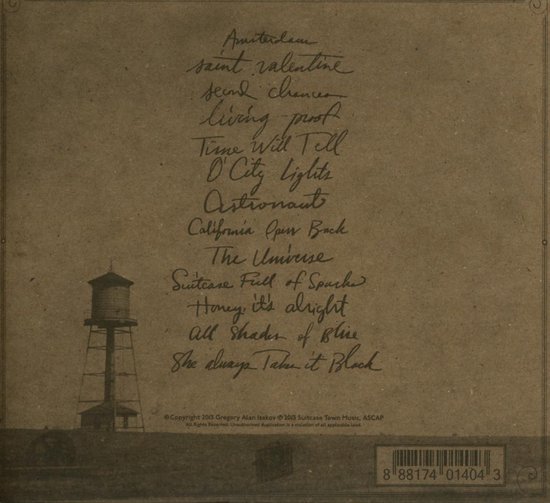 Amsterdam
saint valentine
second chances
living proof
Time Will Tell
O' City Lights
Astronaut
California Open Back
The Universe
Suitcase Full of Sparks
Honey, it's alright
All Shades of Blue
She always Takes it Black
© Copyright 2013 Gregory Alan Isakov ℗ 2013 Suitcase Town Music, ASCAP
All Rights Reserved. Unauthorized duplication is a violation of all applicable laws.
8 88174 01404 3